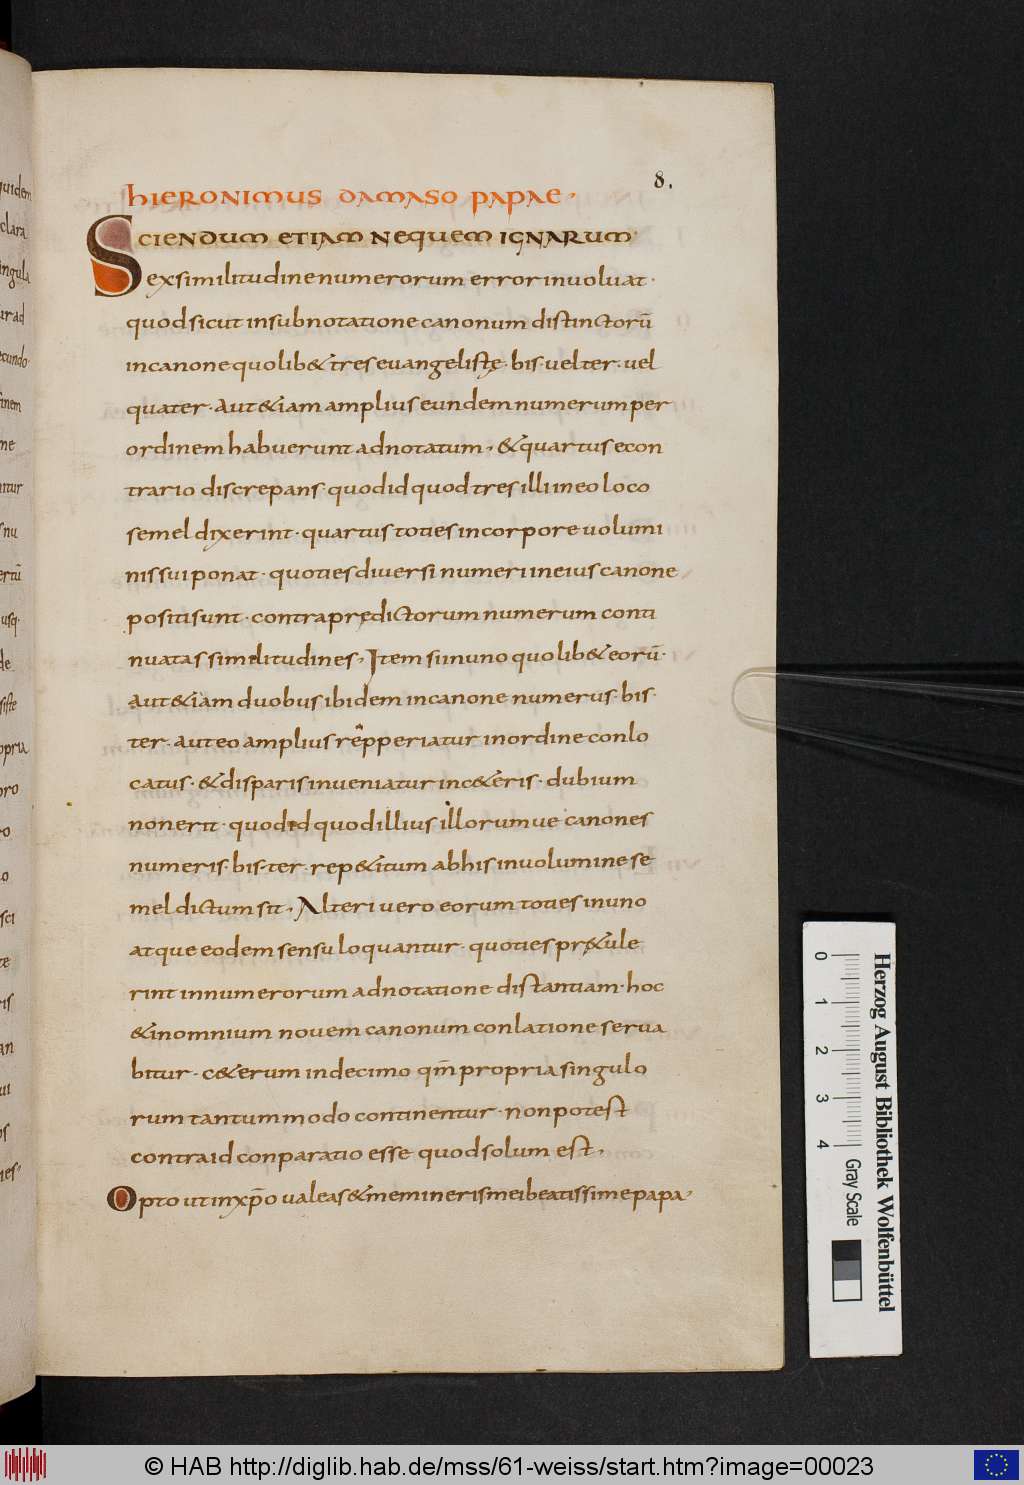 8.
hIERONIMUS DAMASO PAPAE.
SCIENDUM ETIAM NEQUEM IGNARUM
ex similitudine numerorum error inuoluat.
quod sicut insubnotatione canonum distinctorū
in canone quolib& tres euangelistę. bis. uel ter. uel
quater. aut &iam amplius eundem numerum per
ordinem habuerunt adnotatum. & quartus econ
trario discrepans. quod id quod tres illi in eo loco
semel dixerint. quartus toties in corpore uolumi
nis sui ponat. quoties diuersi numeri in eius canone
positi sunt. contra prędictorum numerum conti
nuatas similitudines. Item si in uno quolib& eorū.
aut &iam duobus ibidem in canone numerus. bis.
ter. aut eo amplius repperiatur in ordine conlo
catus. & disparis inueniatur in c&eris. dubium
non erit. quod id quod illius illorumue canones
numeris. bis. ter. rep&itum ab his in uolumine se
mel dictum sit. Alteri uero eorum toties in uno
atque eodem sensu loquantur. quoties pr&ule
rint in numerorum adnotatione distantiam. hoc
& in omnium nouem canonum conlatione serua
bitur. c&erum in decimo qm̄ propria singulo
rum tantummodo continentur. non potest
contra id conparatio esse quod solum est.
Opto ut in xp̄o ualeas & memineris mei beatissime papa.
quidem
clara
ingula
ecundo.
finem
me
nu
ertū
usq.
de
siste
opria
pro
sci
te
ris
an
Herzog August Bibliothek Wolfenbüttel
0 1 2 3 4
Gray Scale
© HAB http://diglib.hab.de/mss/61-weiss/start.htm?image=00023